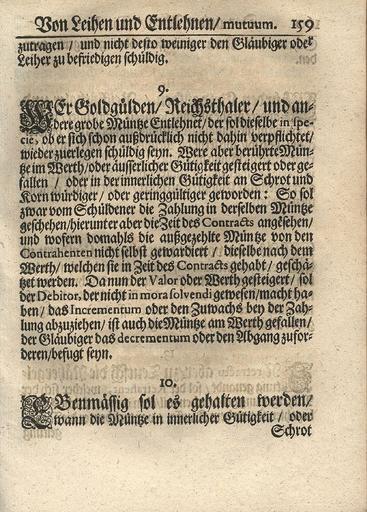 Von Leihen und Entlehnen/ mutuum. 159
zutragen / und nicht desto weiniger den Gläubiger oder
Leiher zu befriedigen schüldig.
9.
WEr Goldgülden/ Reichsthaler/ und an-
dere grobe Müntze Entlehnet/ der sol dieselbe in spe-
cie, ob er sich schon außdrücklich nicht dahin verpflichtet/
wieder zuerlegen schüldig seyn. Were aber berührte Mün-
tze im Werth/ oder äusserlicher Gütigkeit gesteigert oder ge-
fallen / oder in der innerlichen Gütigkeit an Schrot und
Korn würdiger/ oder geringgültiger geworden: So sol
zwar vom Schüldener die Zahlung in derselben Müntze
geschehen/ hierunter aber die Zeit des Contracts angesehen/
und wofern domahls die außgezehlte Müntze von den
Contrahenten nicht selbst gewardiert / dieselbe nach dem
Werth/ welchen sie in Zeit des Contracts gehabt/ geschä-
tzet werden. Da nun der Valor oder Werth gesteigert/ sol
der Debitor, der nicht in mora solvendi gewesen/ macht ha-
ben/ das Incrementum oder den Zuwachs bey der Zah-
lung abzuziehen/ ist auch die Müntze am Werth gefallen/
der Gläubiger das decrementum oder den Abgang zufor-
deren/ befugt seyn.
10.
EBenmässig sol es gehalten werden/
wann die Müntze in innerlicher Gütigkeit / oder
Schrot